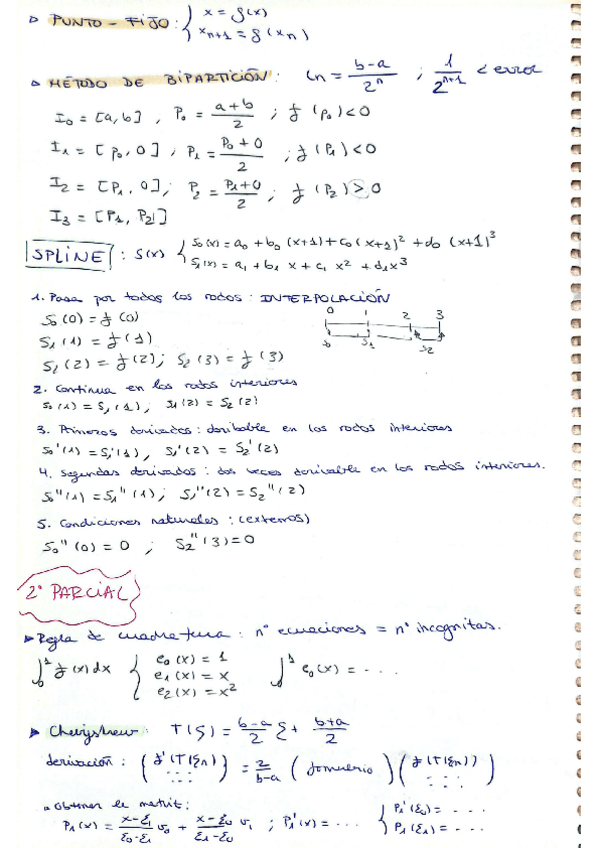 ▷ PUNTO - FIJO : { x = g(x)
x_{n+1} = g(x_n)
▷ MÉTODO DE BIPARTICIÓN : ln = \frac{b-a}{2^n} ; \frac{1}{2^{n+1}} < error
I_0 = [a,b] , P_0 = \frac{a+b}{2} ; f(p_0) < 0
I_1 = [p_0, 0] , P_1 = \frac{P_0+0}{2} ; f(P_1) < 0
I_2 = [P_1, 0] ; P_2 = \frac{P_1+0}{2} ; f(P_2) > 0
I_3 = [P_1, P_2]
SPLINE : S(x) { S_0(x) = a_0 + b_0 (x+1) + c_0 (x+1)^2 + d_0 (x+1)^3
S_1(x) = a_1 + b_1 x + c_1 x^2 + d_1 x^3
1. Pasa por todos los nodos : INTERPOLACIÓN
S_0(0) = f(0)
0 1 2 3
S_1(1) = f(1)
S_1 S_2
S_2(2) = f(2) ; S_2(3) = f(3)
2. Continua en los nodos interiores
S_0(1) = S_1(1) , S_1(2) = S_2(2)
3. Primeras derivadas : derivable en los nodos interiores
S_0'(1) = S_1'(1) , S_1'(2) = S_2'(2)
4. Segundas derivadas : dos veces derivable en los nodos interiores.
S_0''(1) = S_1''(1) ; S_1''(2) = S_2''(2)
5. Condiciones naturales : (extremos)
S_0''(0) = 0 ; S_2''(3) = 0
2º PARCIAL
▶ Regla de cuadratura : nº ecuaciones = nº incognitas.
∫_0^1 f(x) dx { e_0(x) = 1
e_1(x) = x
e_2(x) = x^2
∫_0^1 e_0(x) = - - -
▶ Chevyshev : T(ξ) = \frac{b-a}{2} ξ + \frac{b+a}{2}
derivación : ( f'(T(ξn)) ... ) = \frac{2}{b-a} ( formulario ) ( f(T(ξn)) ... )
Obtener la matriz :
P_1(x) = \frac{x-ξ_1}{ξ_0-ξ_1} v_0 + \frac{x-ξ_0}{ξ_1-ξ_0} v_1 ; P_1'(x) = - - - { P_1'(ξ_0) = - - -
P_1(ξ_1) = - - -